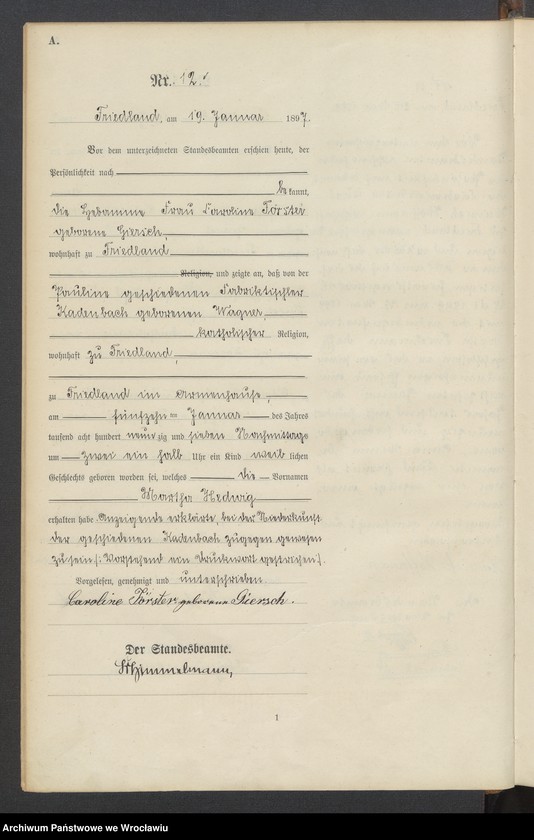 A.
Nr. 12.
Friedland, am 19. Januar 1897.
Vor dem unterzeichneten Standesbeamten erschien heute, der
Persönlichkeit nach
be kannt,
die Hebamme Frau Caroline Förster
geborene Giersch,
wohnhaft zu Friedland
Religion, und zeigte an, daß von der
Pauline geschiedenen Fabriktischler
Kadenbach geborenen Wagner,
katholischer Religion,
wohnhaft zu Friedland,
zu Friedland im Armenhause,
am fünfzehn ten Januar des Jahres
tausend acht hundert neun zig und sieben Nachmittags
um zwei ein halb Uhr ein Kind weib lichen
Geschlechts geboren worden sei, welches die Vornamen
Martha Hedwig
erhalten habe Anzeigende erklärte, bei der Niederkunft
der geschiedenen Kadenbach zugegen gewesen
zu sein (: Vorstehend ein Druckwort gestrichen).
Vorgelesen, genehmigt und unterschrieben
Caroline Förster geborene Giersch.
Der Standesbeamte.
Himmelmann,
1
Archiwum Państwowe we Wrocławiu